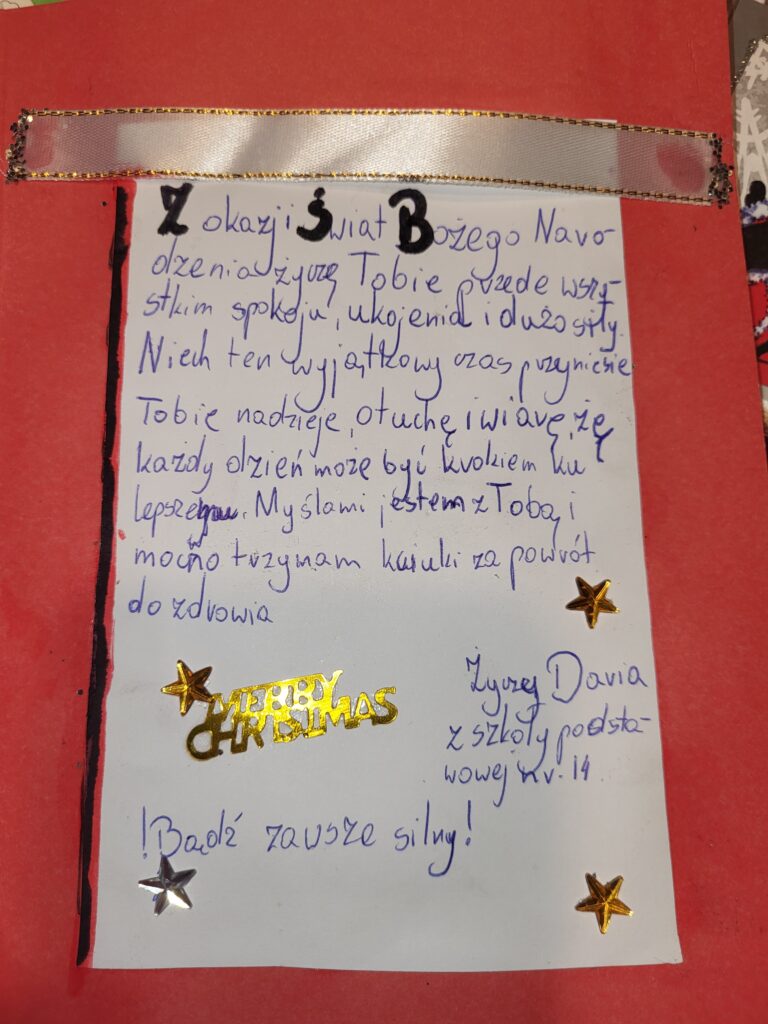 Z okazji Świąt Bożego Naro-
dzenia życzę Tobie przede wszy-
stkim spokoju, ukojenia i dużo siły.
Niech ten wyjątkowy czas przyniesie
Tobie nadzieje, otuchę i wiarę, żę
każdy dzień może być krokiem ku
lepszemu. Myślami jestem z Tobą i
mocno trzymam kciuki za powrót
do zdrowia
Życzę Daria
z szkoły podsta-
wowej nr. 14
MERRY
CHRISTMAS
!Bądź zawsze silny!